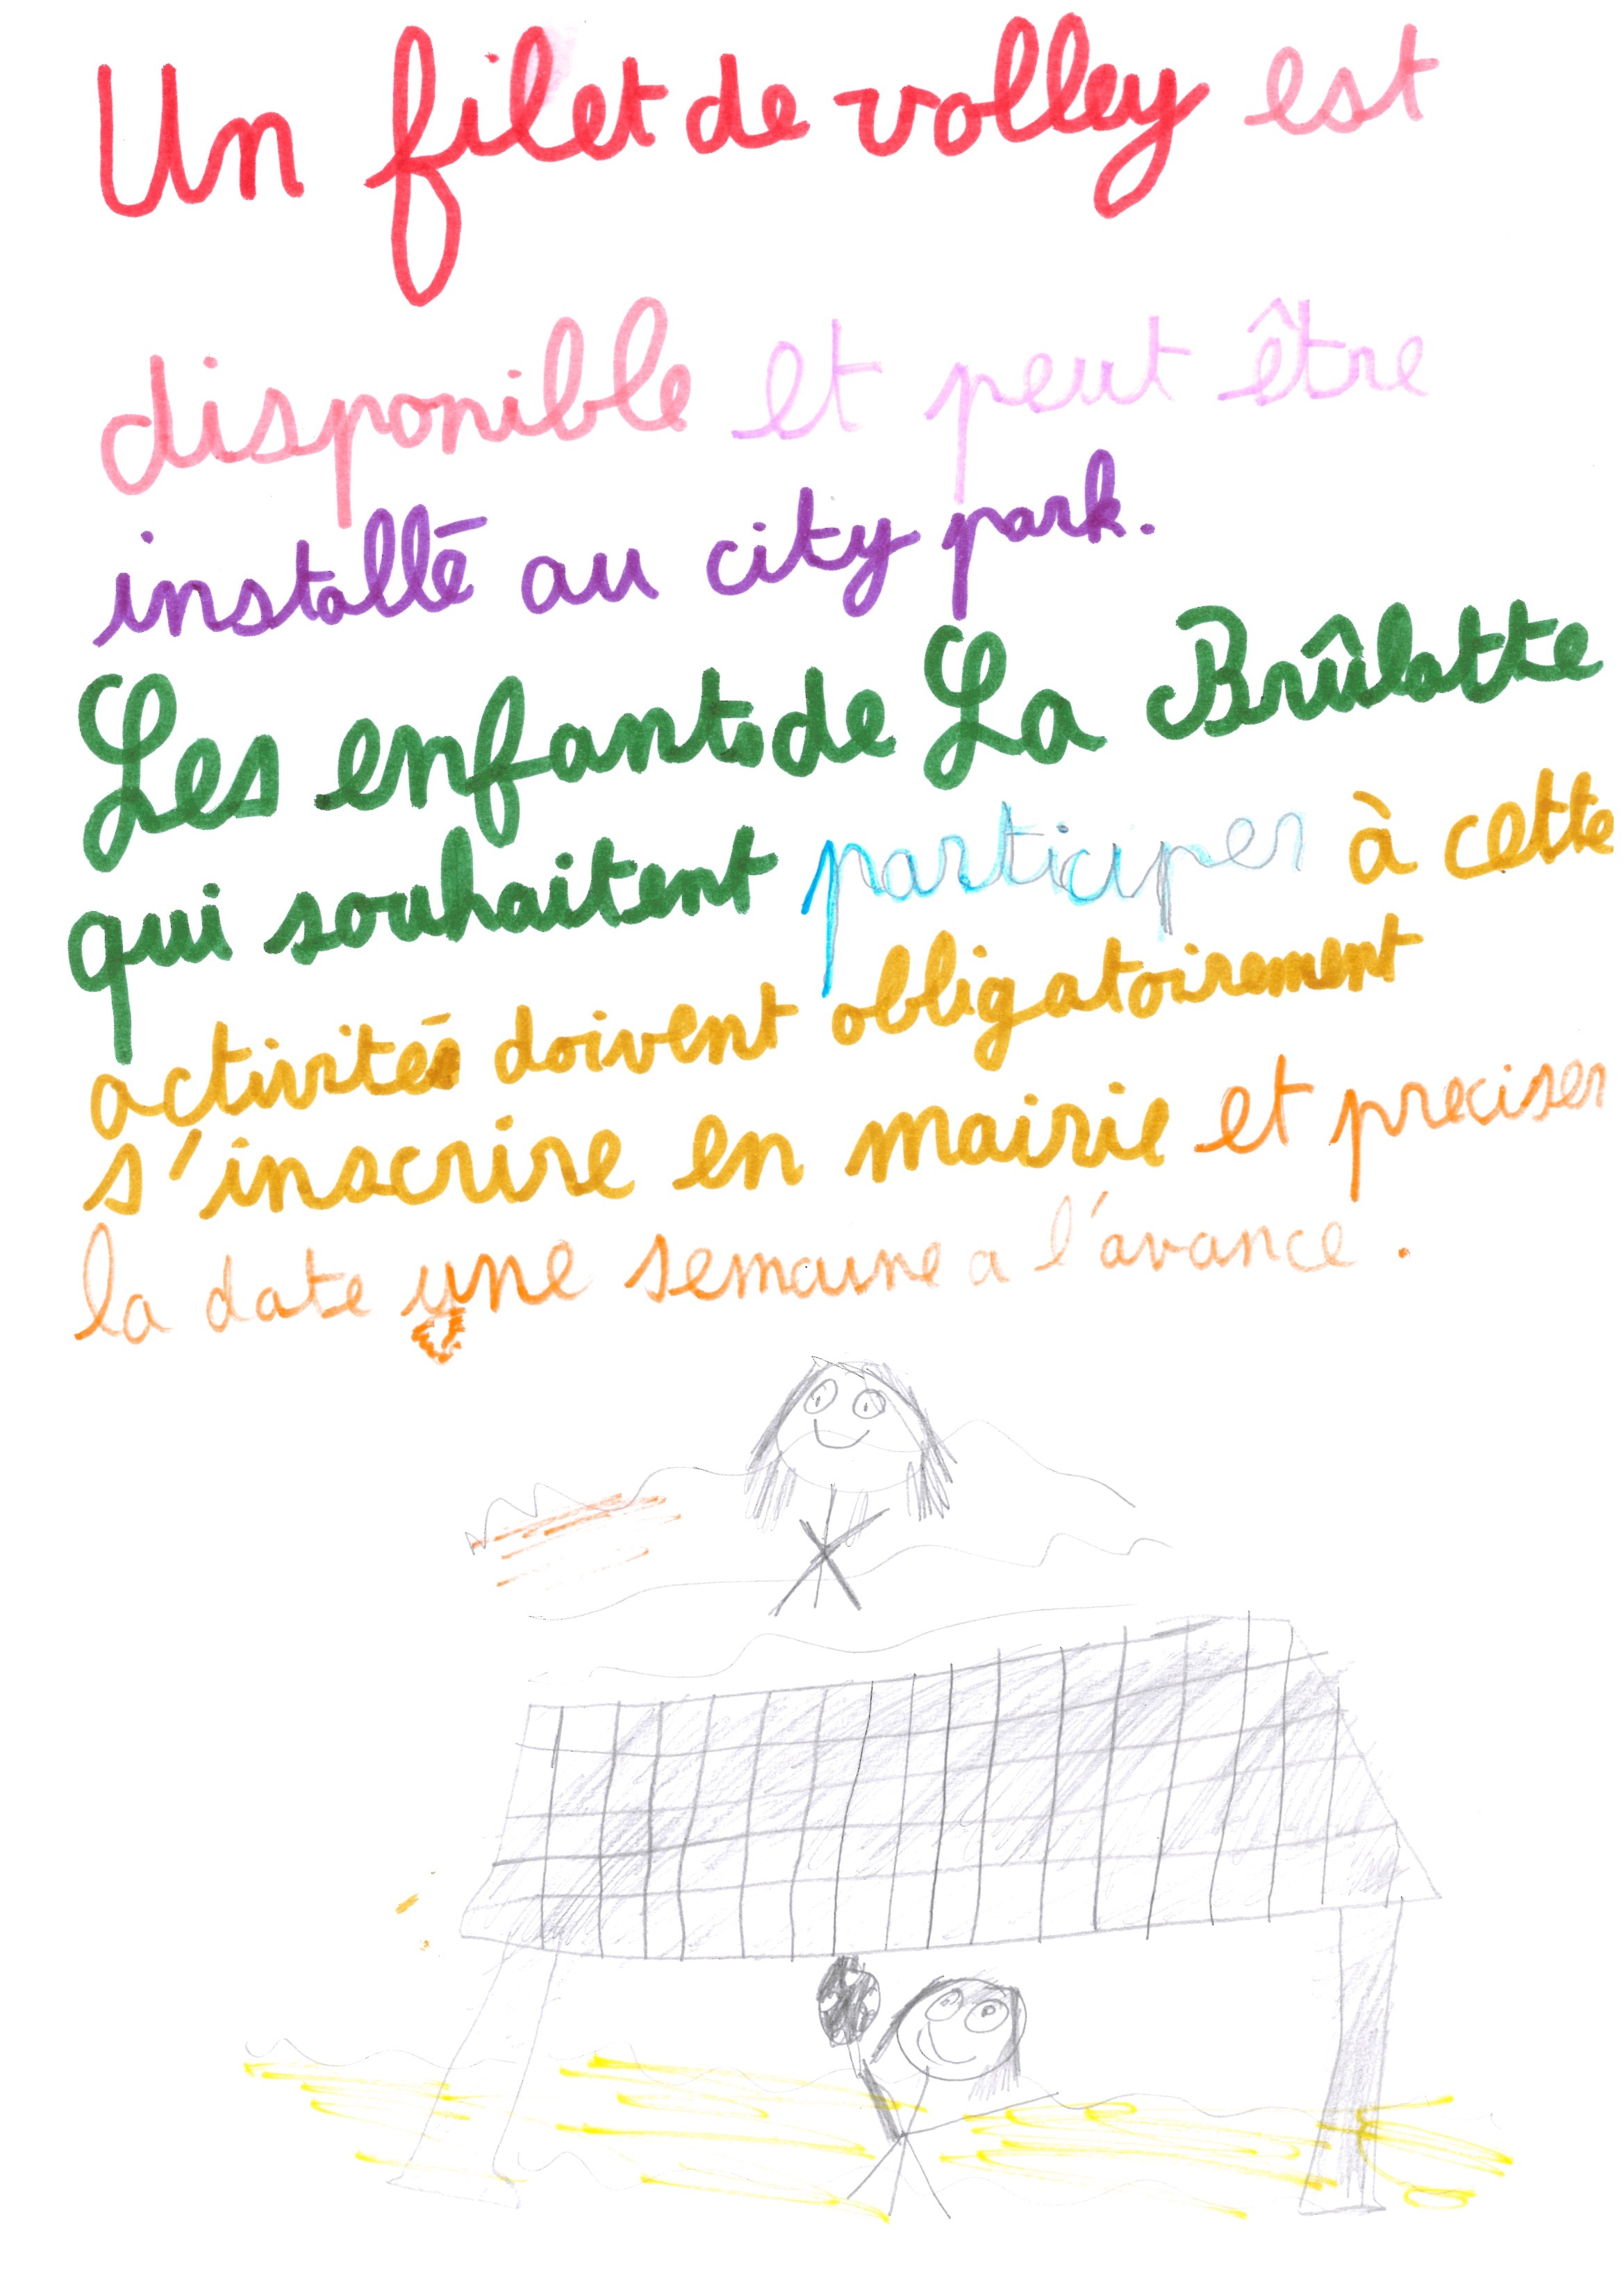 Un filet de volley est
disponible et peut être
installé au city park.
Les enfants de La Brûlatte
qui souhaitent participer à cette
activités doivent obligatoirement
s'inscrire en mairie et preciser
la date une semaine a l'avance.